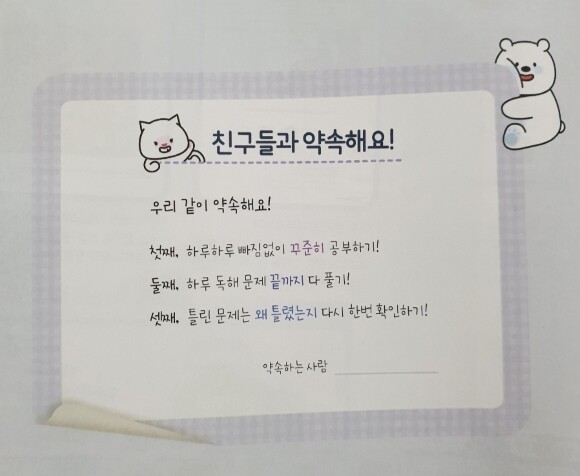 친구들과 약속해요!
우리 같이 약속해요!
첫째, 하루하루 빠짐없이 꾸준히 공부하기!
둘째, 하루 독해 문제 끝까지 다 풀기!
셋째, 틀린 문제는 왜 틀렸는지 다시 한번 확인하기!
약속하는 사람